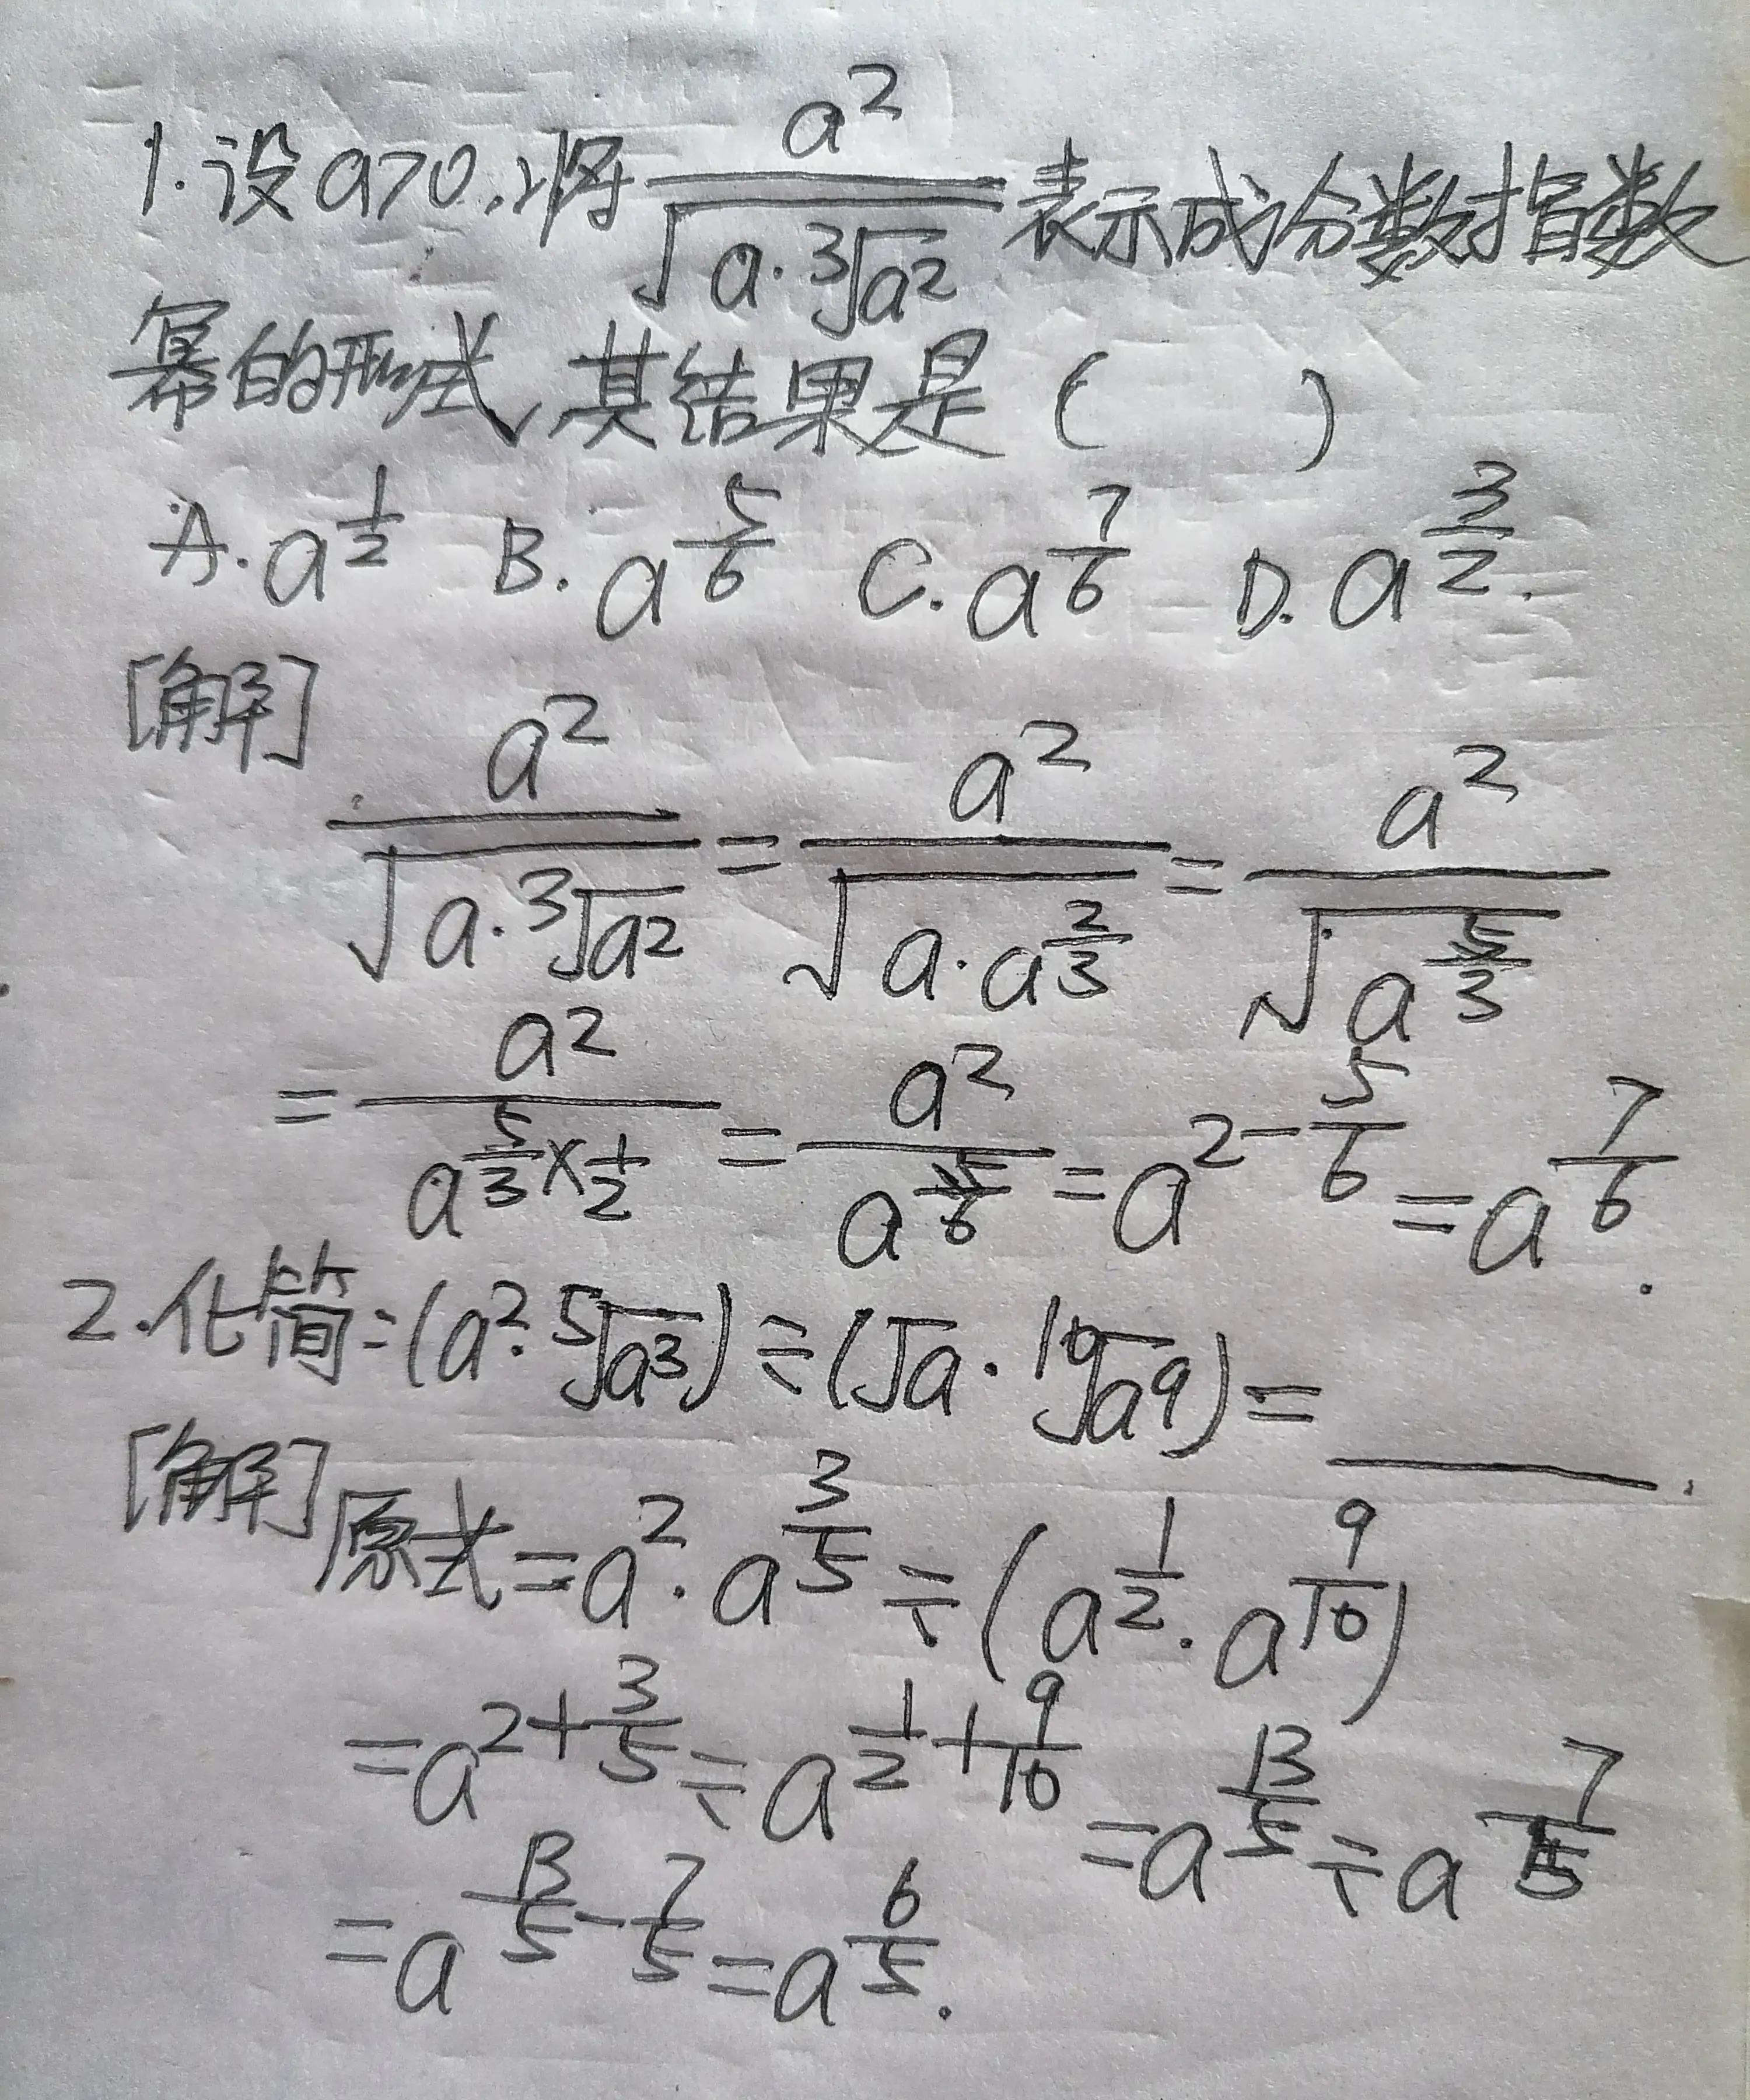 1.设a>0,将a²/√(a·³√a²)表示成分数指数
幂的形式,其结果是( )
A.a^(1/2) B.a^(5/6) C.a^(7/6) D.a^(3/2).
[解]
a²/√(a·³√a²)=a²/√(a·a^(2/3))=a²/√(a^(5/3))
=a²/a^(5/3×1/2)=a²/a^(5/6)=a^(2-5/6)=a^(7/6).
2.化简:(a²·⁵√a³)÷(√a·¹⁰√a⁹)=____.
[解]原式=a²·a^(3/5)÷(a^(1/2)·a^(9/10))
=a^(2+3/5)÷a^(1/2+9/10)=a^(13/5)÷a^(7/5)
=a^(13/5-7/5)=a^(6/5).